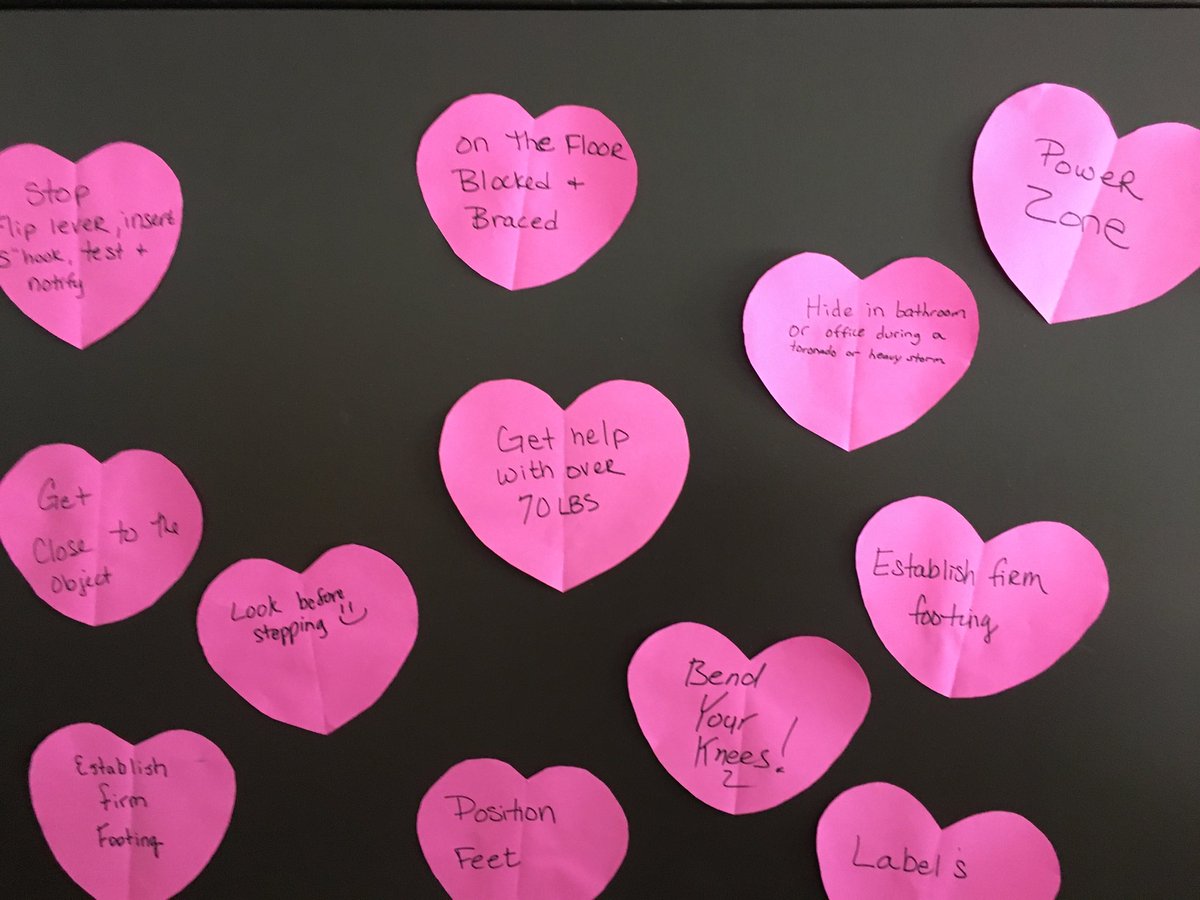 Stop
Flip lever, insert
S" hook, test +
notify
on the Floor
Blocked +
Braced
Power
Zone
Hide in bathroom
or office during a
toronado or heavy storm
Get help
with over
70 LBS
Get
Close to the
object
Look before
stepping
Establish firm
footing
Bend
Your
Knees!
Establish
firm
Footing
Position
Feet
Label's